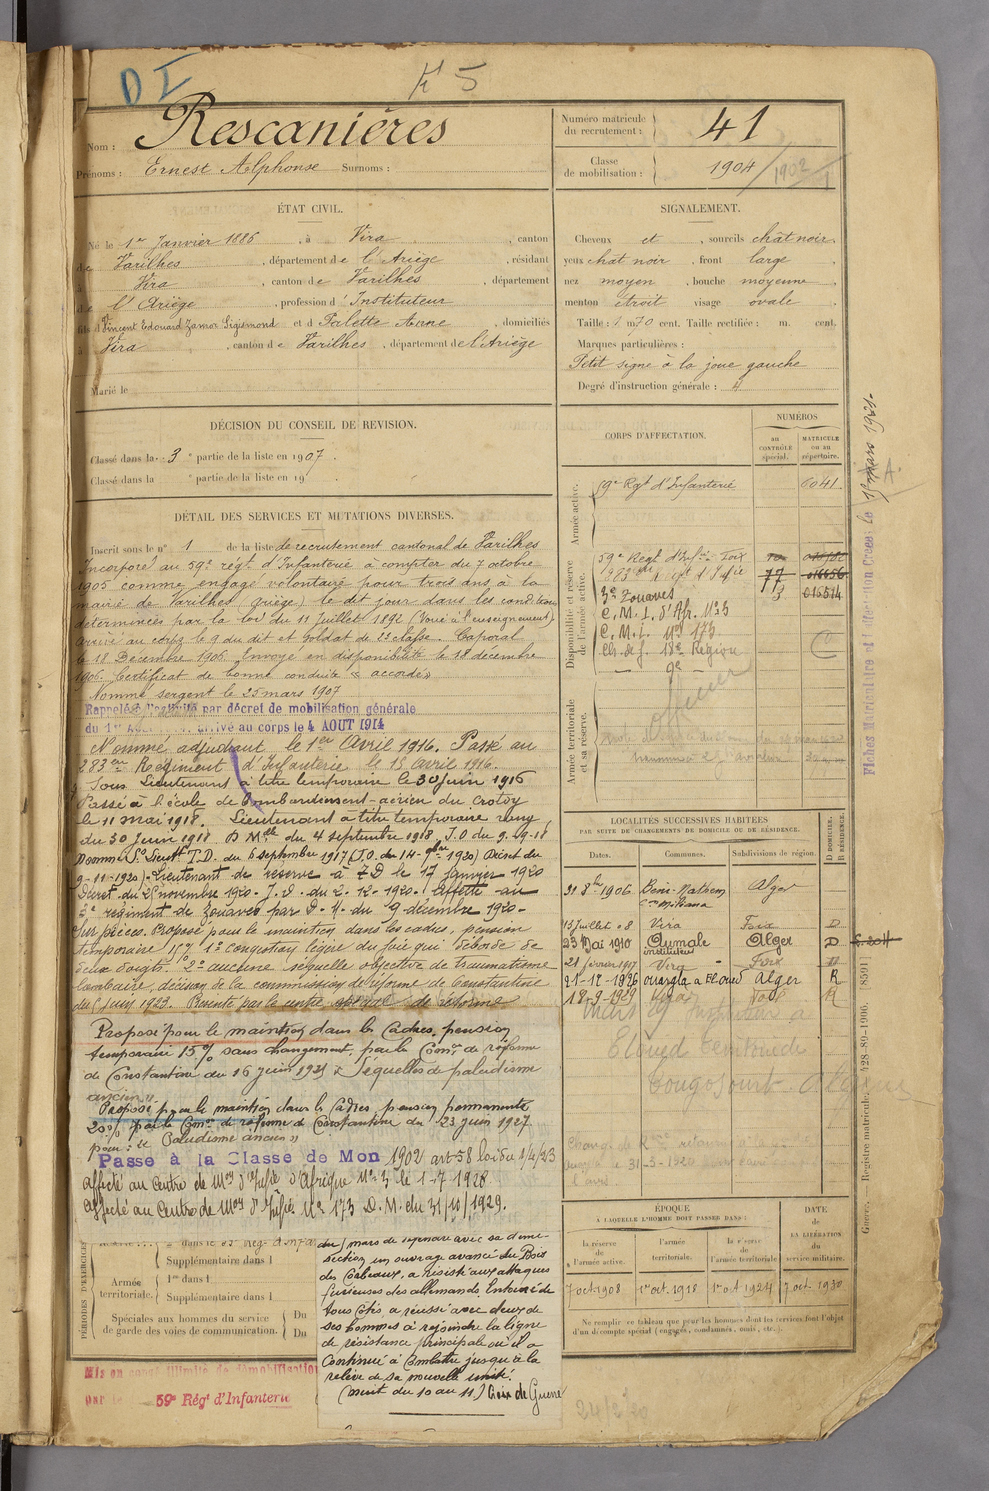 D I
K 5
Nom : Rescanières
Prénoms : Ernest Alphonse Surnoms :
Numéro matricule du recrutement : 41
Classe de mobilisation : 1904 / 1902
ÉTAT CIVIL.
Né le 1er Janvier 1886, à Vira, canton
de Varilhes, département de l'Ariège, résidant
à Vira, canton de Varilhes, département
de l'Ariège, profession d'Instituteur
fils de Vincent Edouard Zamor Sigismond et de Palette Anne, domiciliés
à Vira, canton de Varilhes, département de l'Ariège
Marié le
SIGNALEMENT.
Cheveux et, sourcils chât noir,
yeux chât noir, front large,
nez moyen, bouche moyenne,
menton étroit visage ovale.
Taille : 1 m 70 cent. Taille rectifiée : m. cent.
Marques particulières :
Petit signe à la joue gauche
Degré d'instruction générale : 4
DÉCISION DU CONSEIL DE REVISION.
Classé dans la 3e partie de la liste en 1907.
Classé dans la e partie de la liste en 19 .
DÉTAIL DES SERVICES ET MUTATIONS DIVERSES.
Inscrit sous le n° 1 de la liste de recrutement cantonal de Varilhes
Incorporé au 59e régt d'Infanterie à compter du 7 octobre
1905 comme engagé volontaire pour trois ans à la
mairie de Varilhes (Ariège) le dit jour dans les conditions
déterminées par la loi du 11 Juillet 1892 (Voué à l'enseignement)
Arrivé au corps le 9 du dit et Soldat de 2e classe. Caporal
le 18 Décembre 1906. Envoyé en disponibilité le 18 décembre
1906. Certificat de bonne conduite « accordé »
Nommé sergent le 25 mars 1907
Rappelé à l'activité par décret de mobilisation générale
du 1er arrivé au corps le 4 AOUT 1914
Nommé adjudant le 1er Avril 1916. Passé au
283ème Régiment d'Infanterie le 15 avril 1916.
Sous Lieutenant à titre temporaire le 30 Juin 1916
Passé à l'école de bombardement aérien du Crotoy
le 11 mai 1918. Lieutenant à titre temporaire rang
du 30 Juin 1918 D Mlle du 4 septembre 1918 J.O du 9-9-18
Nommé S/Lieutt T.D. du 6 septembre 1917 (J.O. du 14-9bre 1920) Décret du
9-11-1920) Lieutenant de réserve à T D le 17 janvier 1920
Décret du 25 novembre 1920. J.O. du 2-12-1920. Affecté au
3e régiment de zouaves par D.M. du 9 décembre 1920.
Sur pièces. Proposé pour le maintien dans les cadres, pension
temporaire 15% 1° Congestion légère du foie qui déborde de
deux doigts. 2° aucune séquelle objective de traumatisme
lombaire, décision de la commission de réforme de Constantine
du 6 juin 1923. Présenté par le centre spécial de réforme
Proposé pour le maintien dans les Cadres, pension
temporaire 15% sans changement, par la Comon de réforme
de Constantine du 16 juin 1925 « Séquelles de paludisme
ancien »
Proposé pour le maintien dans les Cadres pension permanente
20% par la Comon de réforme de Constantine du 23 juin 1927
pour : « Paludisme ancien »
Passé à la Classe de Mon 1902 art 58 loi du 1/4/23
Affecté au Centre de Mon d'Infie d'Afrique N° 3 le 1-7-1928
Affecté au Centre de Mon d'Infie N° 173 D.M. du 31/10/1929.
CORPS D'AFFECTATION.
NUMÉROS
au CONTRÔLE spécial.
MATRICULE ou au répertoire.
Armée active.
59e Rgt d'Infanterie 6041
Disponibilité et réserve de l'armée active.
59e Régt d'Infie Foix
283e Régt d'Infie 77
3e Zouaves 3 016514
C.M.I. d'Afr. N° 3
C.M.I. N° 173
Ch. de f. 18e Région
Armée territoriale et sa réserve.
officier
LOCALITÉS SUCCESSIVES HABITÉES
PAR SUITE DE CHANGEMENTS DE DOMICILE OU DE RÉSIDENCE.
Dates. Communes. Subdivisions de région. D DOMICILE. R RÉSIDENCE.
21 Xbre 1906 Alger
Cne Miliana
15 Juillet 08 Vira Foix D
23 Mai 1910 Aumale Alger D
instituteur
21 février 1917 Vira Foix D
21-12-1926 Ouargla à El oued Alger R
18-9-1929 Foix R
Instituteur à
El oued
Touggourt - Algérie
ÉPOQUE
A LAQUELLE L'HOMME DOIT PASSER DANS :
la réserve de l'armée active. l'armée territoriale. la réserve de l'armée territoriale
DATE de LA LIBÉRATION du service militaire.
7 oct 1908 1er oct. 1918 1er oct 1924 7 oct. 1930
Ne remplir ce tableau que pour les hommes dont les services font l'objet
d'un décompte spécial (engagés, condamnés, omis, etc.).
PÉRIODES D'EXERCICES
Supplémentaire dans l
Armée territoriale.
1re dans l
Supplémentaire dans l
Spéciales aux hommes du service de garde des voies de communication.
Du
Du
du mars de reprendre avec sa demi-
section un ouvrage avancé du Bois
des Corbeaux, a résisté aux attaques
furieuses des allemands. Entouré de
tous côtés a réussi avec deux de
ses hommes à rejoindre la ligne
de résistance principale où il a
Continué à Combattre jusqu'à la
relève de sa nouvelle unité.
(nuit du 10 au 11) Croix de Guerre
Mis en congé illimité de démobilisation
par le 59e Régt d'Infanterie
24/2/20
Fiches Matricules et d'Affection Créées le 15 mars 1921.
Guerre. — Registre matricule. 428-89-1906. [8591]